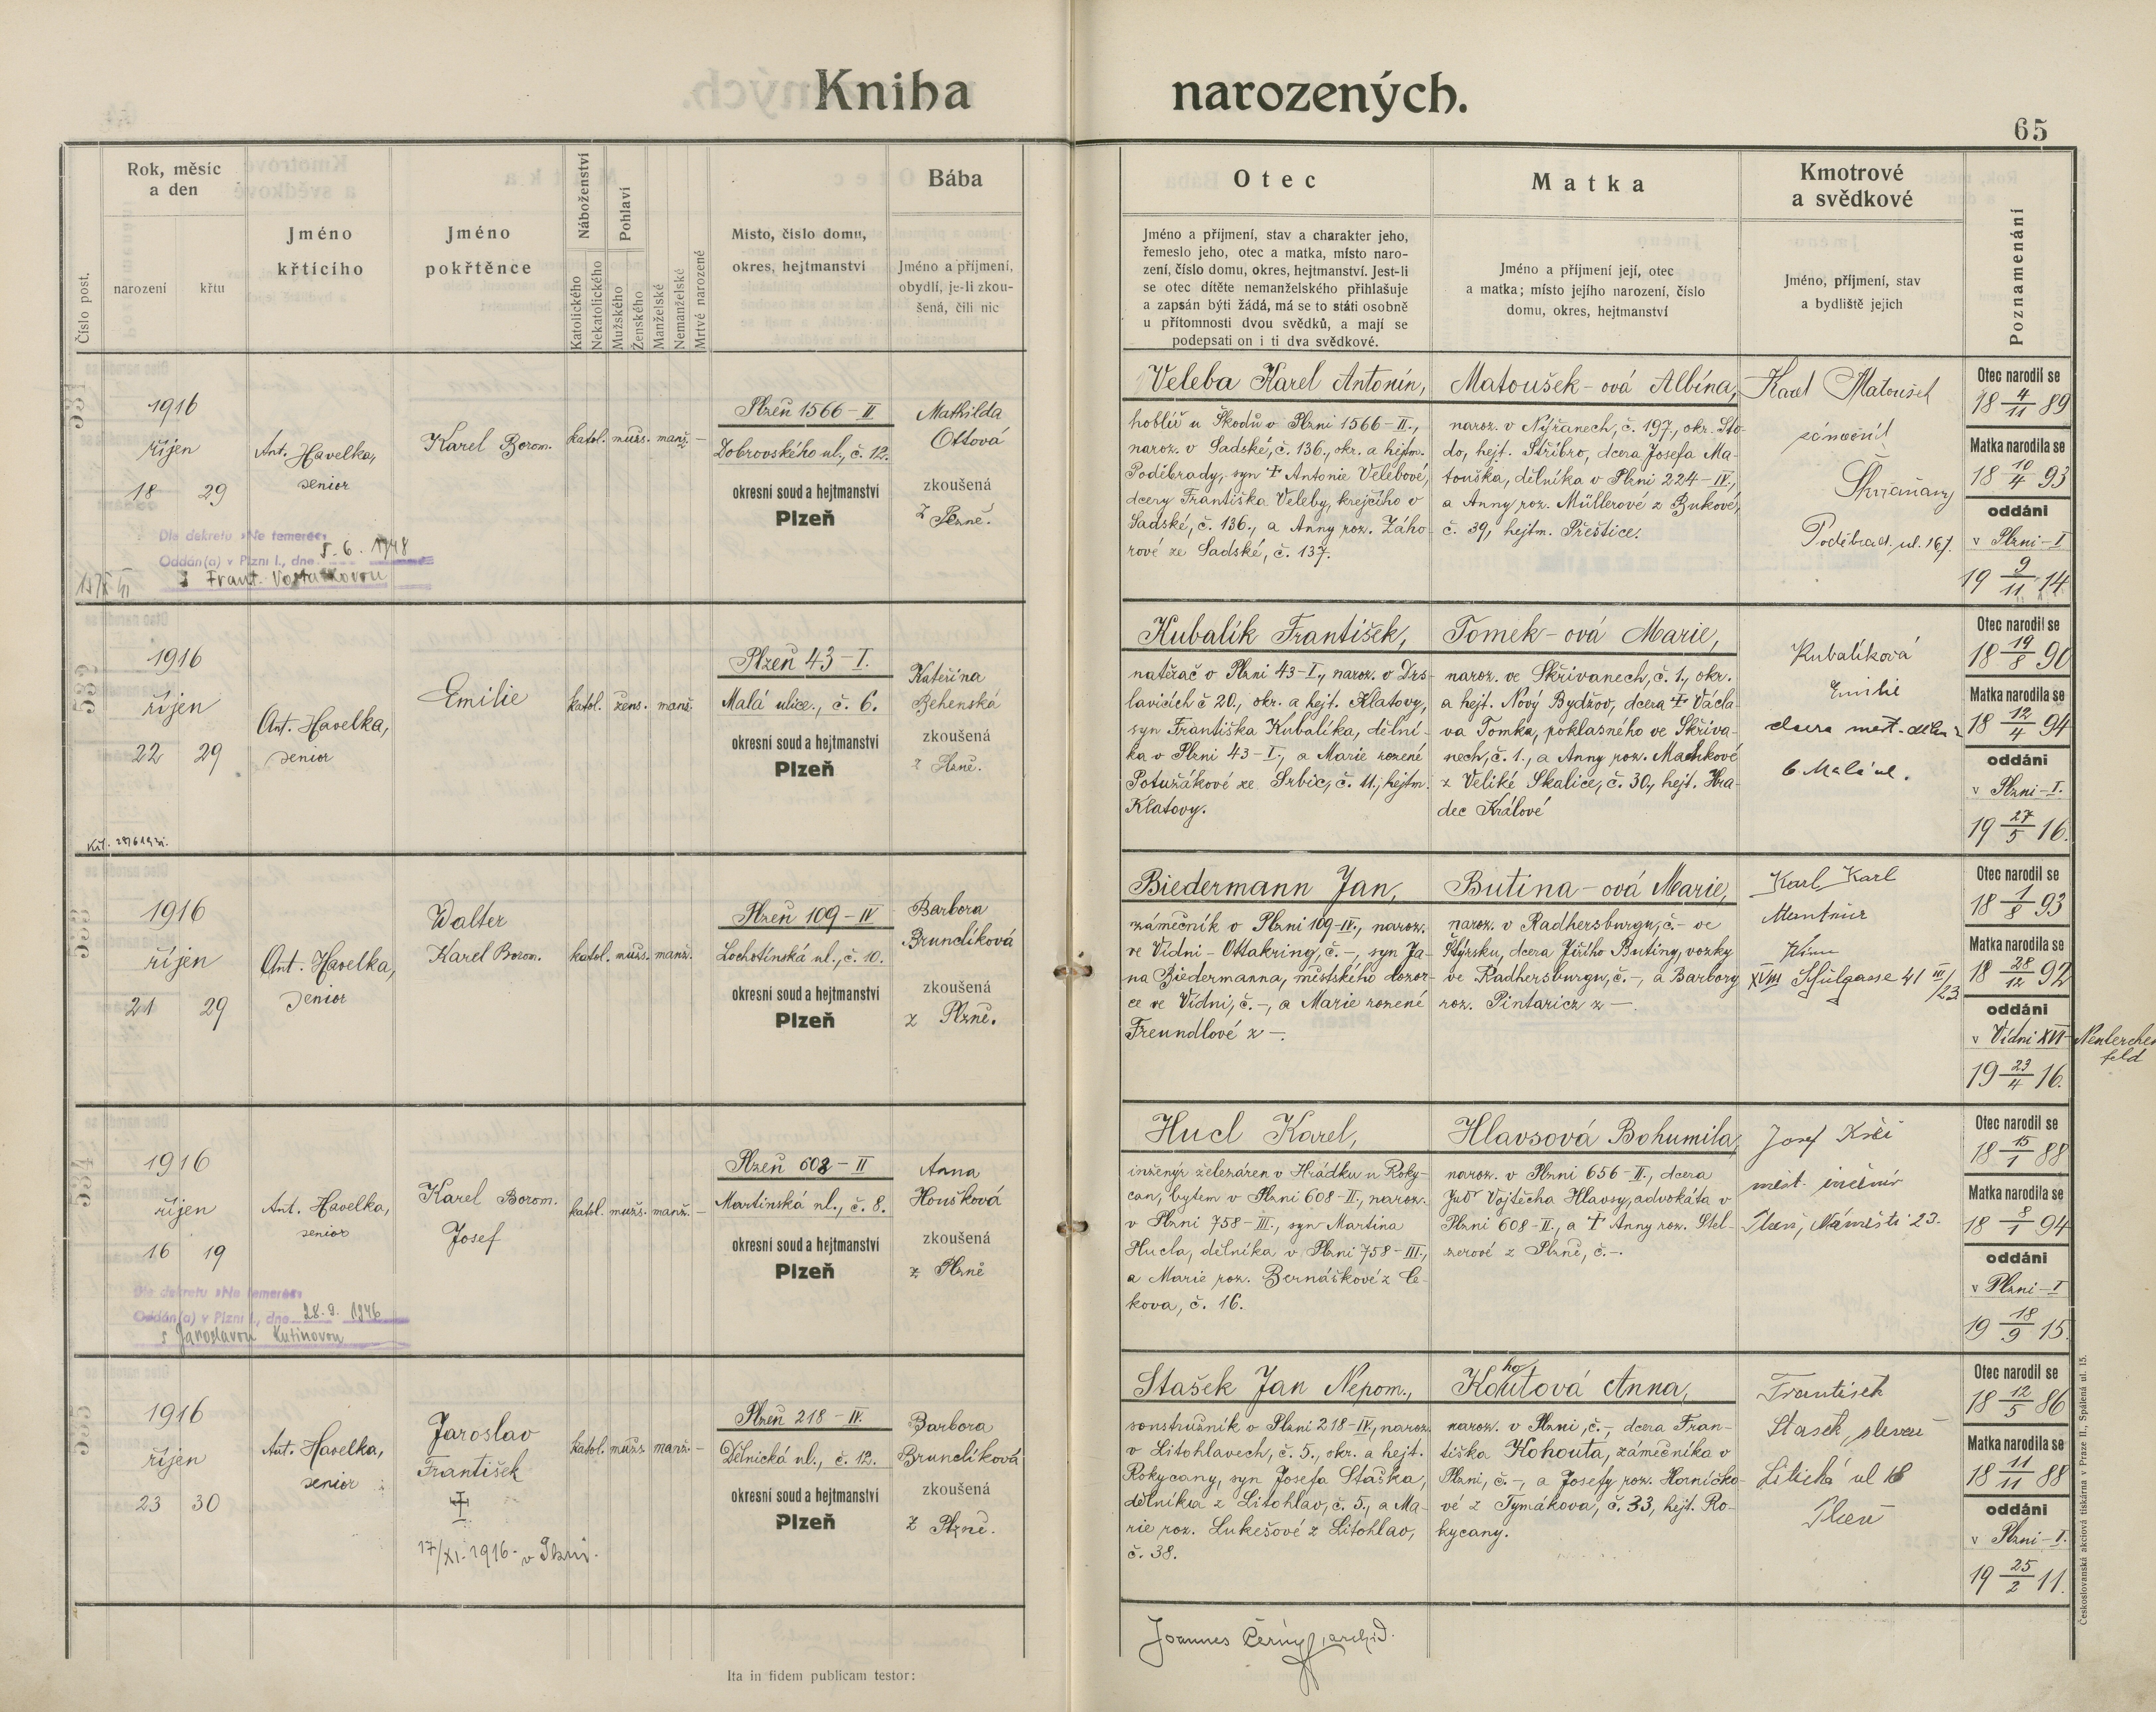 Kniha narozených.
65
Číslo post.
Rok, měsíc
a den
narození
křtu
Jméno
křtícího
Jméno
pokřtěnce
Náboženství
Katolického
Nekatolického
Pohlaví
Mužského
Ženského
Manželské
Nemanželské
Mrtvé narozené
Místo, číslo domu,
okres, hejtmanství
Bába
Jméno a příjmení,
obydlí, je-li zkou-
šená, čili nic
Otec
Jméno a příjmení, stav a charakter jeho,
řemeslo jeho, otec a matka, místo naro-
zení, číslo domu, okres, hejtmanství. Jest-li
se otec dítěte nemanželského přihlašuje
a zapsán býti žádá, má se to státi osobně
u přítomnosti dvou svědků, a mají se
podepsati on i ti dva svědkové.
Matka
Jméno a příjmení její, otec
a matka; místo jejího narození, číslo
domu, okres, hejtmanství
Kmotrové
a svědkové
Jméno, příjmení, stav
a bydliště jejich
Poznamenání
531
1916
říjen
18 29
Ant. Havelka,
senior
Karel Borom.
katol. muž. manž. —
Plzeň 1566-II
Dobrovského ul., č. 12.
okresní soud a hejtmanství
Plzeň
Mathilda
Ottová
zkoušená
z Plzně.
Dle dekretu »Ne temere«
Oddán(a) v Plzni I., dne 5. 6. 1948
s Frant.
Veleba Karel Antonín,
hoblíř u Škodů v Plzni 1566-II.,
naroz. v Sadské, č. 136., okr. a hejtm.
Poděbrady, syn † Antonie Velebové,
dcery Františka Veleby, krejčího v
Sadské, č. 136., a Anny roz. Záho-
rové ze Sadské, č. 137.
Matoušek-ová Albína,
naroz. v Nýřanech, č. 197., okr. Sto-
do, hejt. Stříbro, dcera Josefa Ma-
touška, dělníka v Plzni 224-IV.,
a Anny roz. Müllerové z Bukové,
č. 39, hejtm. Přeštice.
Karel Matoušek
zámečník
Skvrňany
Poděbrad. ul. 167.
Otec narodil se
18 4/11 89
Matka narodila se
18 10/4 93
oddáni
v Plzni-I
19 9/11 14
532
1916
říjen
22 29
Ant. Havelka,
senior
Emilie
katol. žens. manž.
Plzeň 43-I.
Malá ulice., č. 6.
okresní soud a hejtmanství
Plzeň
Kateřina
Behenská
zkoušená
z Plzně.
Kubalík František,
natěrač v Plzni 43-I., naroz. v Drs-
lavicích č 20., okr. a hejt. Klatovy,
syn Františka Kubalíka, dělní-
ka v Plzni 43-I., a Marie rozené
Potužákové ze Srbic, č. 11., hejtm.
Klatovy.
Tomek-ová Marie,
naroz. ve Skřivanech, č. 1., okr.
a hejt. Nový Bydžov, dcera † Václa-
va Tomka, poklasného ve Skřiva-
nech, č. 1., a Anny roz. Machkové
z Veliké Skalice, č. 30., hejt. Hra-
dec Králové
Kubalíková
Emilie
dcera měst. děln.
6 Malá ul.
Otec narodil se
18 19/8 90
Matka narodila se
18 12/4 94
oddáni
v Plzni-I.
19 27/5 16.
533
1916
říjen
21 29
Ant. Havelka,
senior
Walter
Karel Borom.
katol. muž. manž.
Plzeň 109-IV
Lochotínská ul., č. 10.
okresní soud a hejtmanství
Plzeň
Barbora
Brunclíková
zkoušená
z Plzně.
Biedermann Jan,
zámečník v Plzni 109-IV., naroz.
ve Vídni-Ottakring, č. -, syn Ja-
na Biedermanna, městského dozor-
ce ve Vídni, č. -, a Marie rozené
Freundlové z -.
Butina-ová Marie,
naroz. v Radkersburgu, č. - ve
Štýrsku, dcera Jiřího Butiny, vozky
ve Radkersburgu, č. -, a Barbory
roz. Pintaricz z -
Karl Karl
Monteur
Wien
XVIII Schulgasse 41 III/23
Otec narodil se
18 1/8 93
Matka narodila se
18 28/12 92
oddáni
v Vídni XVI-Neulerchen
feld
19 23/4 16.
534
1916
říjen
16 19
Ant. Havelka,
senior
Karel Borom.
Josef
katol. muž. manž. —
Plzeň 608-II
Martinská ul., č. 8.
okresní soud a hejtmanství
Plzeň
Anna
Houšková
zkoušená
z Plzně
Dle dekretu »Ne temere«
Oddán(a) v Plzni I., dne 28. 9. 1946
s Jaroslavou Kutinovou
Hucl Karel,
inženýr železáren v Hrádku u Roky-
can, bytem v Plzni 608-II, naroz.
v Plzni 758-III., syn Martina
Hucla, dělníka v Plzni 758-III.,
a Marie roz. Bernáškové z Ce-
kova, č. 16.
Hlavsová Bohumila,
naroz. v Plzni 656-II., dcera
Judr Vojtěcha Hlavsy, advokáta v
Plzni 608-II., a † Anny roz. Stel-
zerové z Plzně, č. -.
Josef
měst. inženýr
Plzeň, Náměstí 23.
Otec narodil se
18 15/1 88
Matka narodila se
18 8/1 94
oddáni
v Plzni-I
19 18/9 15.
535
1916
říjen
23 30
Ant. Havelka,
senior
Jaroslav
František
†
17/XI. 1916. v Plzni.
katol. muž. manž. —
Plzeň 218-IV.
Dělnická ul., č. 12.
okresní soud a hejtmanství
Plzeň
Barbora
Brunclíková
zkoušená
z Plzně.
Stašek Jan Nepom.,
soustružník v Plzni 218-IV., naroz.
v Litohlavech, č. 5., okr. a hejt.
Rokycany, syn Josefa Staška,
dělníka z Litohlav, č. 5., a Ma-
rie roz. Lukešové z Litohlav,
č. 38.
Kohoutová Anna,
naroz. v Plzni, č. -, dcera Fran-
tiška Kohouta, zámečníka v
Plzni, č. -, a Josefy roz. Horničko-
vé z Tymákova, č. 33, hejt. Ro-
kycany.
František
Stašek,
ul 16
Plzeň
Otec narodil se
18 12/5 86
Matka narodila se
18 11/11 88
oddáni
v Plzni-I.
19 25/2 11.
Joannes Černý, archid.
Ita in fidem publicam testor:
Českoslovanská akciová tiskárna v Praze II., Spálená ul. 15.